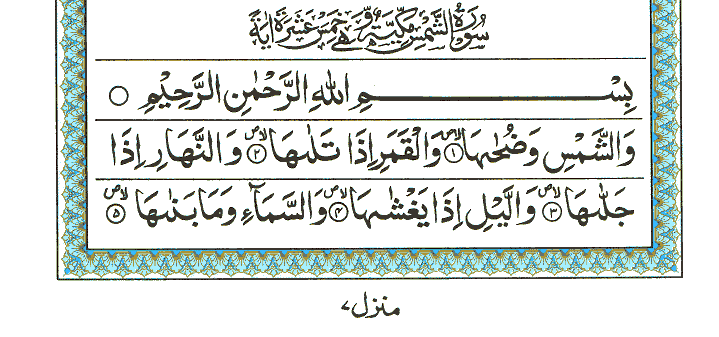 سُوْرَةُ الشَّمْسِ مَكِّيَّةٌ وَّهِيَ خَمْسَ عَشْرَةَ اٰيَةً
بِسْمِ اللهِ الرَّحْمٰنِ الرَّحِيْمِ ○
وَالشَّمْسِ وَضُحٰىهَا ۙ۱ وَالْقَمَرِ اِذَا تَلٰىهَا ۙ۲ وَالنَّهَارِ اِذَا
جَلّٰىهَا ۙ۳ وَالَّيْلِ اِذَا يَغْشٰىهَا ۙ۴ وَالسَّمَآءِ وَمَا بَنٰىهَا ۙ۵
منزل ۷